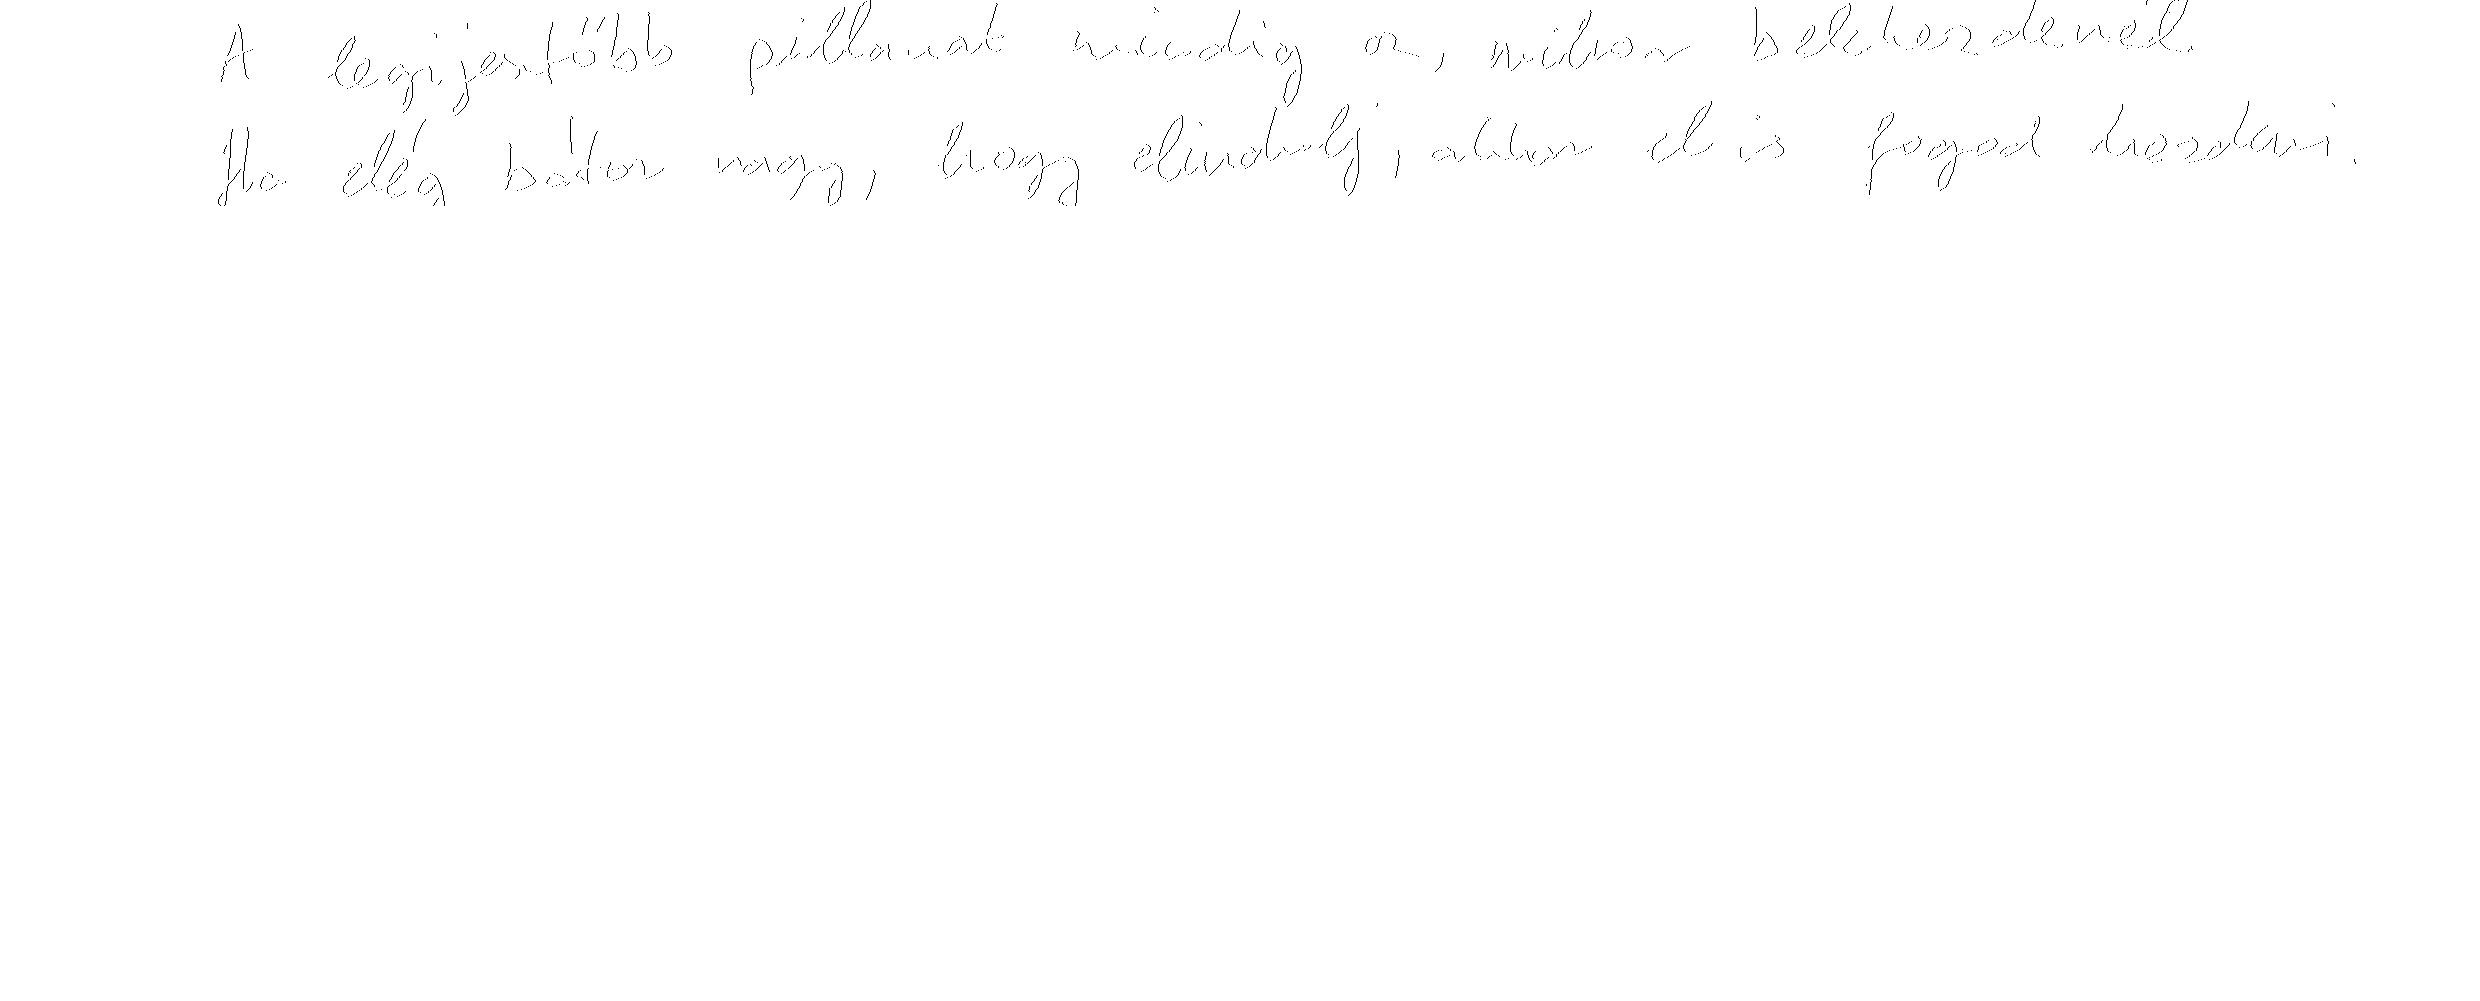 A legijesztőbb pillanat mindig az, mikor belekezdenél.
Ha elég bátor vagy, hogy elindulj, akkor el is fogod kezdeni.